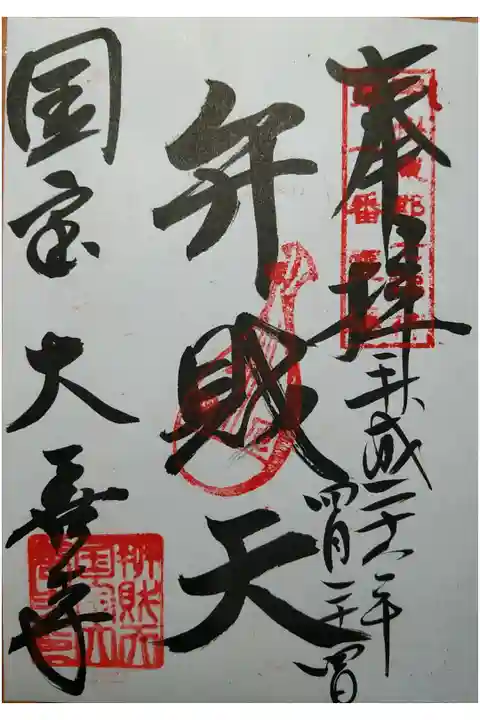 奉拝
平成二十六年
四月二十四日
弁財天
国宝 大善寺